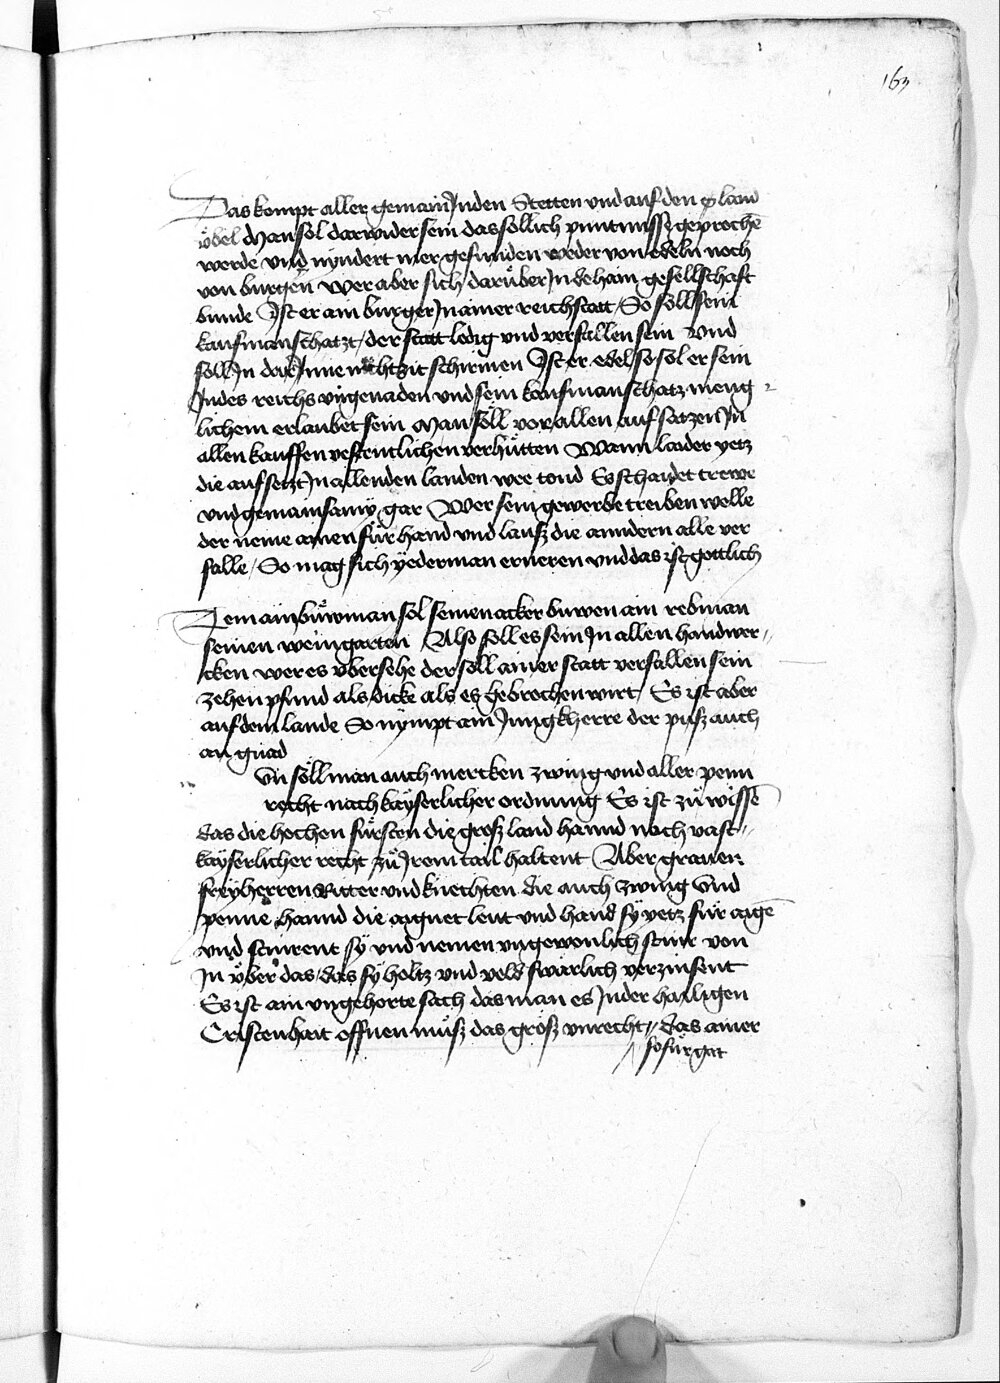 163
Das kompt aller gemain Jn den Stetten vnd auf den land
v̈bel Man sol darwider sein das sollich puntnusse geprochē
werde vnd nyndert mer gefunden weder von edeln noch
von burgern wer aber sich darüber Jn dehain gesellschaft
bunde Jst er ain burger Jn ainer reichstatt / So soll sein
kaufmanschatzt / der statt ledig vnd verfallen sein Vnd
soll Jn dar Jnne nicht schirmen Jst er edel so sol er sein
Jn des reichs vngenaden vnd sein kaufmanschatz meng
lichem erlaubet sein Man soll vor allen auf satzen Jn
allen kauffen vestentlichen verhütten Wann laider yetz
die auf setzt Jn allenden landen wee tond Es schaidet trewe
vnd gemainsamy gar Wer sein gewerbe treiben welle
der neme ainen für hand vnd lausz die anndern alle ver
falle / So mag sich yederman erneren vnd das ist gottlich
Jtem ain buwman sol seinen acker buwen ain rebman
seinen weingarten Also soll es sein Jn allen handwer
cken wer es v̈bersehe der soll ainer statt verfallen sein
zehen pfund als dicke als es gebrochen wirt / Es ist aber
auf dem lande So nympt ain Jungkherre der pusz auch
an gnad
Vn soll man auch mercken zwing vnd aller penn
recht nach kayserlicher ordnung Es ist zü wissē
das die hochen fürsten die grosz land hannd noch vast
kayserlicher recht zü Jrem tail haltent Aber grauen
freyherren Ritter vnd knechten die auch zwing vnd
penne hannd die aignet leut vnd hand sy yetz für aigē
vnd steurent sy vnd nemen vngewonlich steur von
Jn v̈ber das / das sy holtz vnd veld swärlich verzinsent
Es ist ain vngehorte sach das man es Jn der hailligen
Cristenhait offnen müsz das grosz vnrecht / das ainer
so für gat